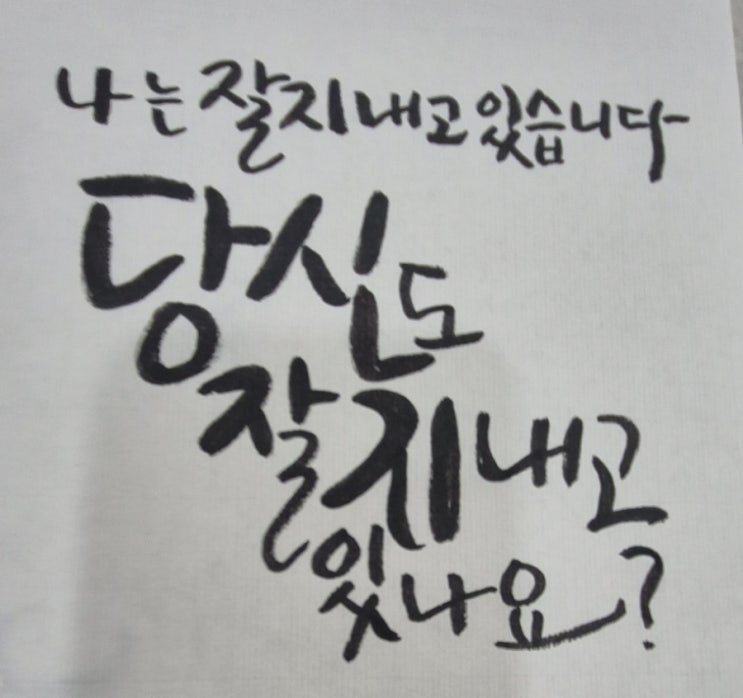 나는 잘지내고 있습니다
당신도
잘지내고
있나요?